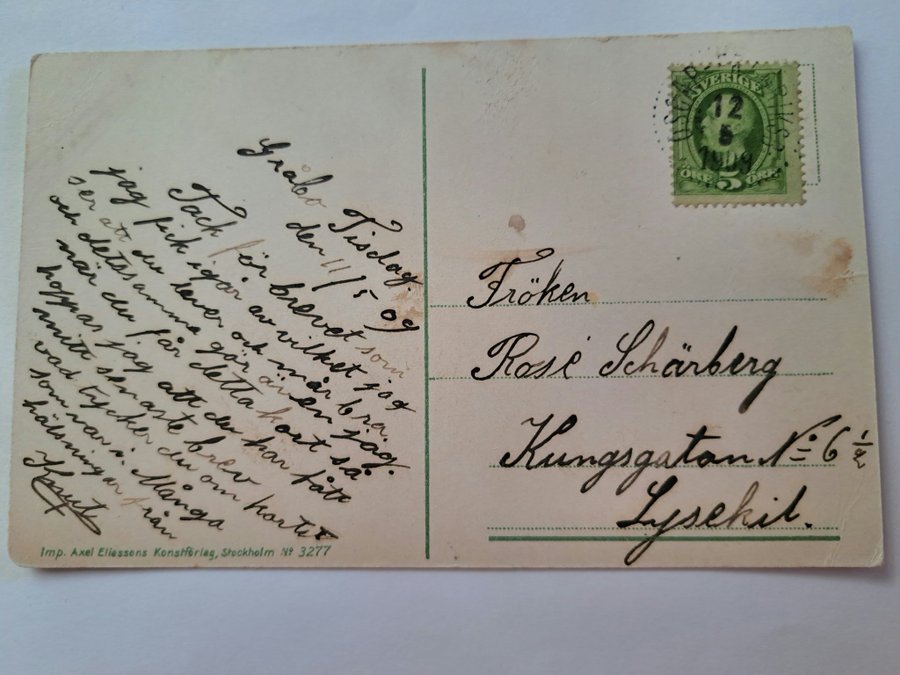 Gråbo Tisdag.
den 11/5 09
Tack för brevet som
jag fick igår av vilket jag
ser att du lever och mår bra.
och detsamma gör även jag.
när du får detta kort så
hoppas jag att du har fått
mitt senaste brev
vad tycker du om kortet
som var i. Många
hälsningar från
Knut
Imp. Axel Eliassons Konstförlag, Stockholm Nº 3277
SVERIGE
12
5
1909
ÖRE 5 ÖRE
Fröken
Rosé Schärberg
Kungsgatan Nº 6 1/2
Lysekil.